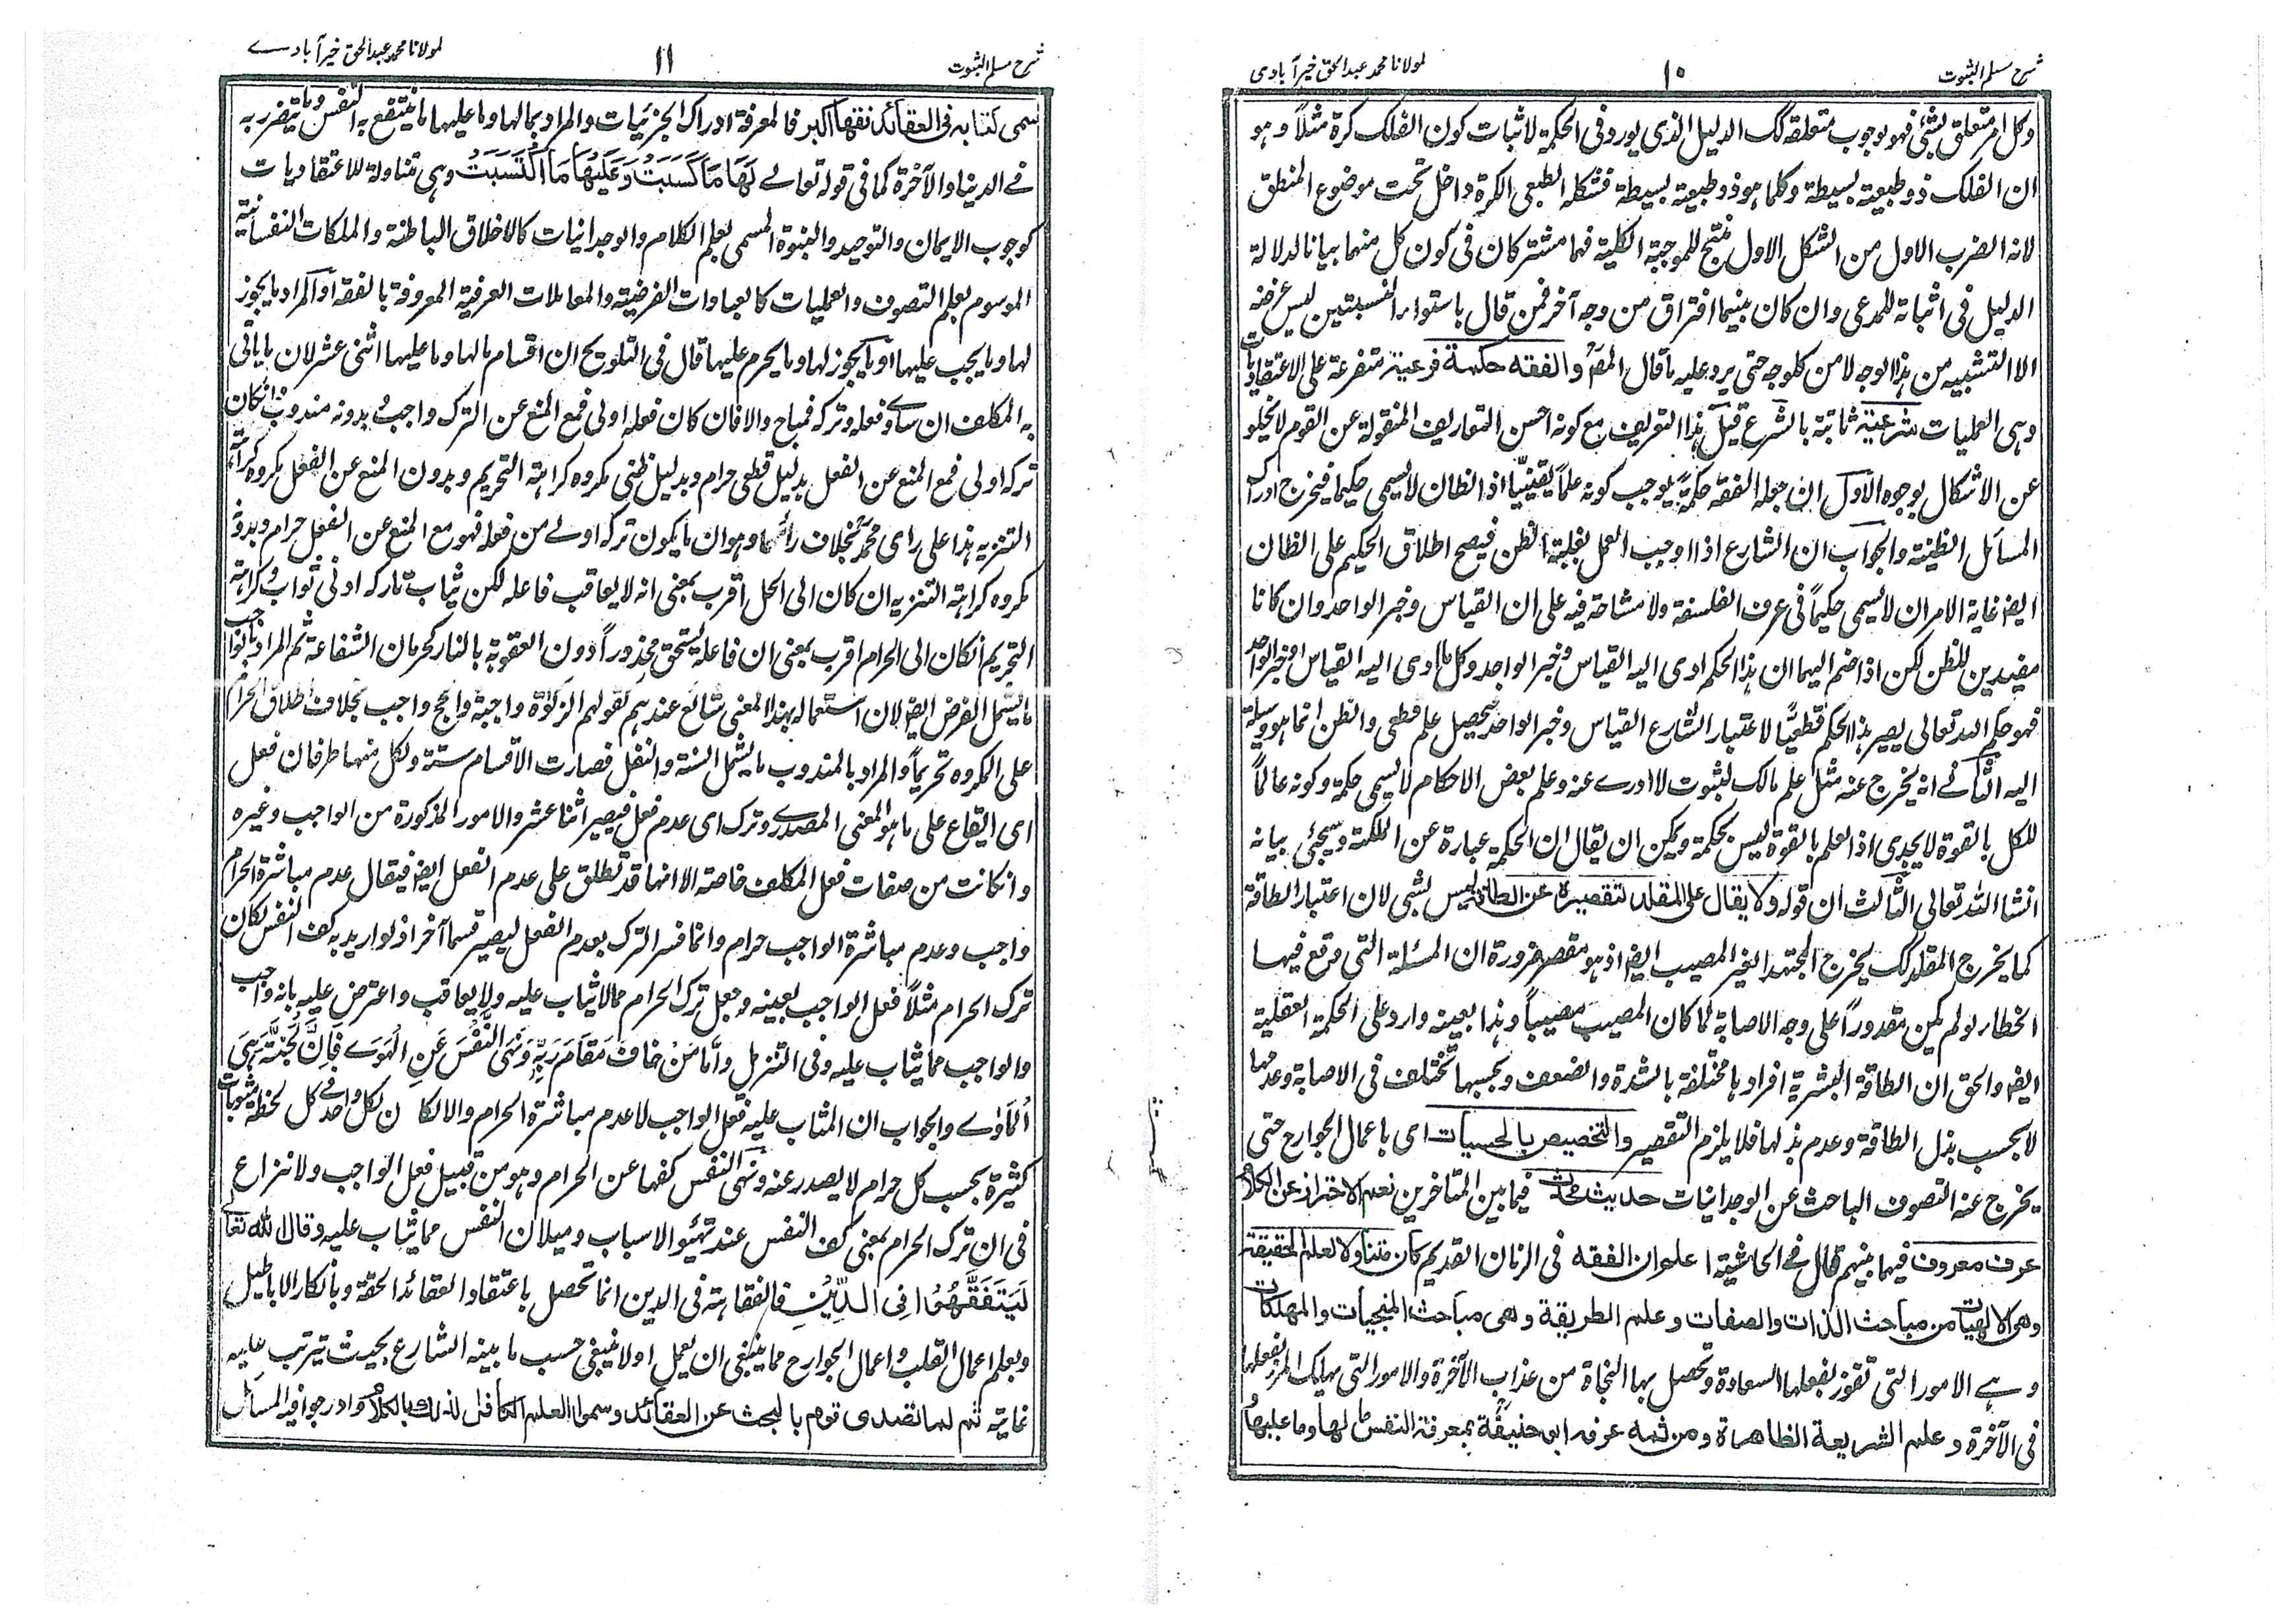 شرح مسلم الثبوت
۱۰
لمولانا محمد عبدالحق خیرآبادی
وکل امر متعلق بشئ فهو بوجوب متعلقه کک الدلیل الذی یورد فی الحکمة لاثبات کون الفلک کرة مثلاً و هو
ان الفلک ذو طبیعة بسیطة وکلما هو ذو طبیعة بسیطة فشکله الطبعی الکرة داخل تحت موضوع المنطق
لانه الضرب الاول من الشکل الاول منتج للموجبة الکلیة فهما مشترکان فی کون کل منهما بیانا لدلالة
الدلیل فی اثباته للمدعی وان کان بینهما افتراق من وجه آخر فمن قال باستواء النسبتین لیس غرضه
الا التشبیه من هذا الوجه لا من کل وجه حتی یرد علیه ما قال المصـ والفقه حکمة فرعیة متفرعة علی الاعتقادیات
وهی العملیات شرعیة ثابتة بالشرع قیل هذا التعریف مع کونه احسن التعاریف المنقولة عن القوم لا یخلو
عن الاشکال بوجوه الاول ان جعله الفقه حکمةً یوجب کونه علماً یقینیّا اذ الظان لا یسمی حکیما فیخرج ادراک
المسائل الظنیة والجواب ان الشارع اذا اوجب العمل بغلبة الظن فیصح اطلاق الحکیم علی الظان
ایضـ غایة الامر ان لا یسمی حکیماً فی عرف الفلسفة ولا مشاحة فیه علی ان القیاس وخبر الواحد وان کانا
مفیدین للظن لکن اذا ضم الیهما ان هذا الحکم ادی الیه القیاس وخبر الواحد وکل ما ادی الیه القیاس او خبر الواحد
فهو حکم الله تعالی یصیر هذا الحکم قطعیًّا لاعتبار الشارع القیاس وخبر الواحد فیحصل علم قطعی والظن انما هو وسیلة
الیه الثانے انه یخرج عنه مثل علم مالک لثبوت لا ادرے عنه وعلم بعض الاحکام لا یسمی حکمة وکونه عالماً
للکل بالقوة لا یجدی اذ العلم بالقوة لیس بحکمة ویمکن ان یقال ان الحکمة عبارة عن الملکة وسیجئی بیانه
انشاء الله تعالی الثالث ان قوله ولا یقال علی المقلد لتقصیره عن الطاقة لیس بشی لان اعتبار الطاقة
کما یخرج المقلد کک یخرج المجتهد الغیر المصیب ایضـ اذ هو مقصر ضرورة ان المسئلة التی وقع فیها
الخطاء لو لم یکن مقدوراً علی وجه الاصابة لما کان المصیب مصیباً وهذا بعینه وارد علی الحکمة العقلیة
ایضـ والحق ان الطاقة البشریة افرادها مختلفة بالشدة والضعف وبحسبها تختلف فی الاصابة وعدمها
لا بحسب بذل الطاقة وعدم بذلها فلا یلزم التقصیر والتخصیص بالحسیات ای باعمال الجوارح حتی
یخرج عنه التصوف الباحث عن الوجدانیات حدیث محدث فیما بین المتاخرین نعم الاحتراز عن الکلام
عرف معروف فیما بینهم قال فی الحاشیة اعلم ان الفقه فی الزمان القدیم کان متناولا لعلم الحقیقة
وهی الالهیات من مباحث الذات والصفات وعلم الطریقة وهی مباحث المنجیات والمهلکات
وہے الامور التی تفوز بفعلها السعادة وتحصل بها النجاة من عذاب الآخرة والامور التی یهلک المرء بفعلها
فی الآخرة وعلم الشریعة الظاهرة ومن ثمه عرفه ابو حنیفةؒ بمعرفة النفس ما لها وما علیها
شرح مسلم الثبوت
۱۱
لمولانا محمد عبدالحق خیرآبادے
سمی کتابه فی العقائد فقها اکبر فالمعرفة ادراک الجزئیات والمراد بما لها وما علیها ما ینتفع به النفس وما یتضرر به
فے الدنیا والآخرة کما فی قوله تعالے لَهَا مَا كَسَبَتْ وَعَلَيْهَا مَا اكْتَسَبَتْ وهی متناولة للاعتقادیات
کوجوب الایمان والتوحید والنبوة المسمی بعلم الکلام والوجدانیات کالاخلاق الباطنة والملکات النفسانیة
الموسوم بعلم التصوف والعملیات کالعبادات الفرضیة والمعاملات العرفیة المعروفة بالفقه او المراد ما یجوز
لها وما یجب علیها او ما یجوز لها وما یحرم علیها قال فی التلویح ان اقسام ما لها وما علیها اثنی عشر لان ما یاتی
به المکلف ان ساوے فعله وترکه فمباح والا فان کان فعله اولی فمع المنع عن الترک واجب وبدونه مندوب وان کان
ترکه اولی فمع المنع عن الفعل بدلیل قطعی حرام وبدلیل ظنی مکروه کراهة التحریم وبدون المنع عن الفعل مکروه کراهة
التنزیه هذا علی رای محمدؒ بخلاف رائهما وهو ان ما یکون ترکه اولے من فعله فهو مع المنع عن الفعل حرام وبدونه
مکروه کراهة التنزیه ان کان الی الحل اقرب بمعنی انه لا یعاقب فاعله لکن یثاب تارکه ادنی ثواب وکراهة
التحریم انکان الی الحرام اقرب بمعنی ان فاعله یستحق محذوراً دون العقوبة بالنار کحرمان الشفاعة ثم المراد بالواجب
ما یشمل الفرض ایضـ لان استعماله بهذا المعنی شائع عندهم کقولهم الزکوٰة واجبة والحج واجب بخلاف اطلاق الحرام
علی المکروه تحریماً والمراد بالمندوب ما یشمل السنة والنفل فصارت الاقسام ستة ولکل منها طرفان فعل
ای ایقاع علی ما هو المعنی المصدرے وترک ای عدم فعل فیصیر اثنا عشر والامور المذکورة من الواجب وغیره
وانکانت من صفات فعل المکلف خاصة الا انها قد تطلق علی عدم الفعل ایضـ فیقال عدم مباشرة الحرام
واجب وعدم مباشرة الواجب حرام وانما فسر الترک بعدم الفعل لیصیر قسماً آخر اذ لو ارید به کف النفس لکان
ترک الحرام مثلاً فعل الواجب بعینه وجعل ترک الحرام مما لا یثاب علیه ولا یعاقب واعترض علیه بانه واجب
والواجب مما یثاب علیه وفی التنزیل وَأَمَّا مَنْ خَافَ مَقَامَ رَبِّهِ وَنَهَى النَّفْسَ عَنِ الْهَوَے فَإِنَّ الْجَنَّةَ هِيَ
الْمَأْوٰے والجواب ان المثاب علیه فعل الواجب لا عدم مباشرة الحرام والا لکان لکل واحد فے کل لحظة مثوبات
کثیرة بحسب کل حرام لا یصدر عنه ونهی النفس کفها عن الحرام وهو من قبیل فعل الواجب ولا نزاع
فی ان ترک الحرام بمعنی کف النفس عند تهیئو الاسباب ومیلان النفس مما یثاب علیه وقال الله تعا
لِيَتَفَقَّهُوْا فِی الدِّيْنِ فالفقاهة فی الدین انما تحصل باعتقاد العقائد الحقة وبانکار الاباطیل
وبعلم اعمال القلب واعمال الجوارح مما ینبغی ان یعمل او لا ینبغی حسب ما بینه الشارع بحیث یترتب علیه
غایته ثم لما تصدی قوم بالبحث عن العقائد وسموا العلم الکافل لذلک بالکلام وادرجوا فیه المسائل